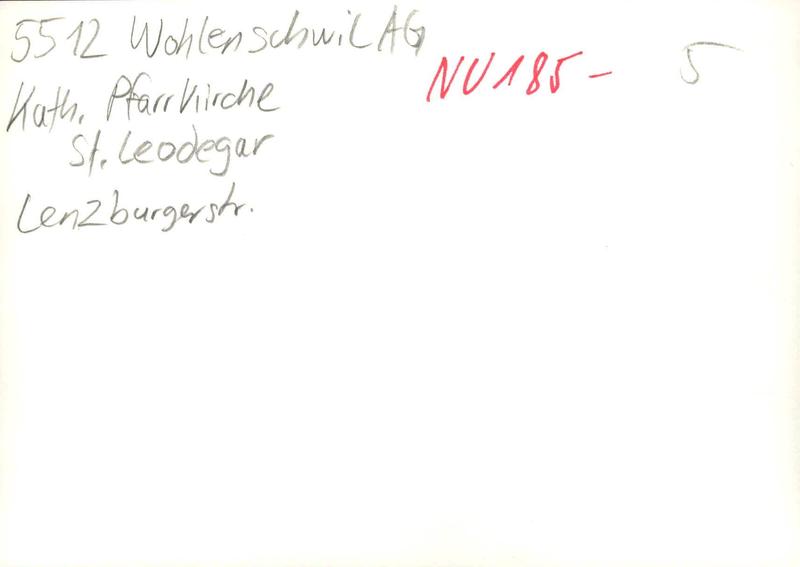 5512 Wohlenschwil AG
NU185- 5
Kath. Pfarrkirche
St. Leodegar
Lenzburgerstr.